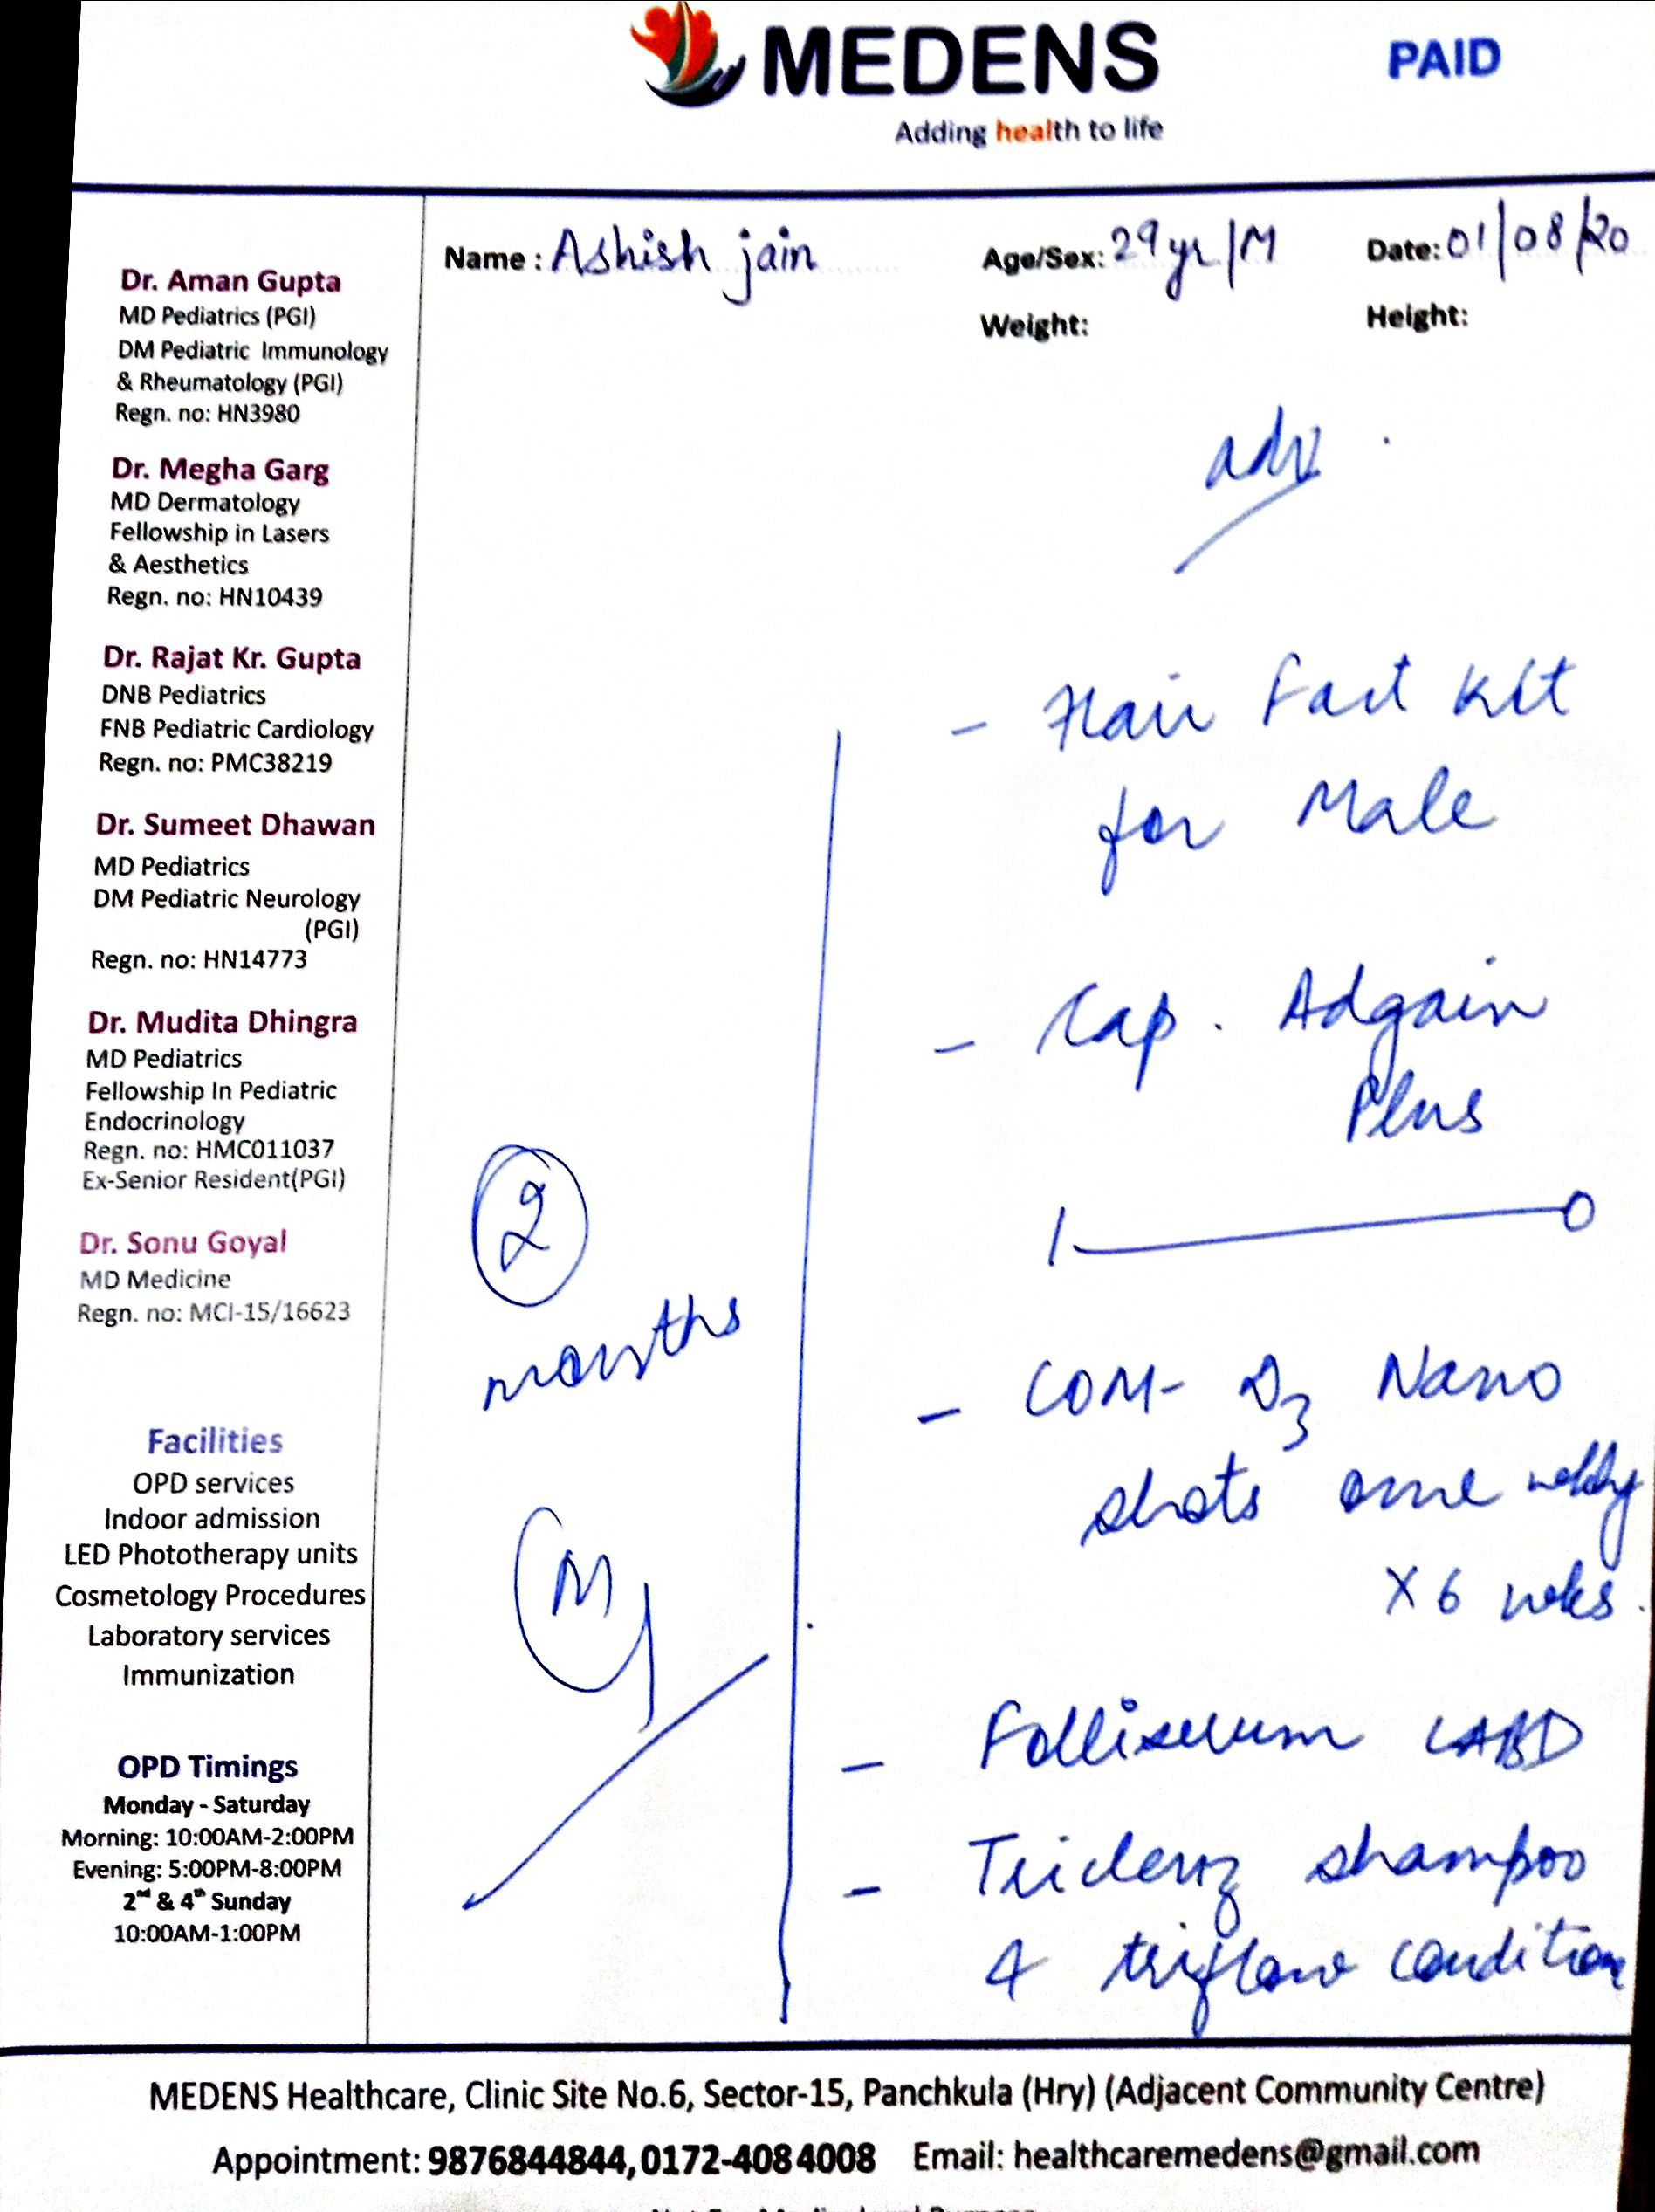 MEDENS
PAID
Adding health to life
Name : Ashish jain
Age/Sex: 29 yr/M
Date: 01/08/20
Weight:
Height:
Dr. Aman Gupta
MD Pediatrics (PGI)
DM Pediatric Immunology
& Rheumatology (PGI)
Regn. no: HN3980
Dr. Megha Garg
MD Dermatology
Fellowship in Lasers
& Aesthetics
Regn. no: HN10439
Dr. Rajat Kr. Gupta
DNB Pediatrics
FNB Pediatric Cardiology
Regn. no: PMC38219
Dr. Sumeet Dhawan
MD Pediatrics
DM Pediatric Neurology
(PGI)
Regn. no: HN14773
Dr. Mudita Dhingra
MD Pediatrics
Fellowship In Pediatric
Endocrinology
Regn. no: HMC011037
Ex-Senior Resident(PGI)
Dr. Sonu Goyal
MD Medicine
Regn. no: MCI-15/16623
Facilities
OPD services
Indoor admission
LED Phototherapy units
Cosmetology Procedures
Laboratory services
Immunization
OPD Timings
Monday - Saturday
Morning: 10:00AM-2:00PM
Evening: 5:00PM-8:00PM
2nd & 4th Sunday
10:00AM-1:00PM
adv
- Hair Fact Kit
for Male
- Cap. Adgain
Plus
1 — 0
- COM- D3 Nano
shots once weekly
X 6 weeks.
- Folliserum LABD
- shampoo
& triflow condition
2
months
MEDENS Healthcare, Clinic Site No.6, Sector-15, Panchkula (Hry) (Adjacent Community Centre)
Appointment: 9876844844, 0172-4084008 Email: healthcaremedens@gmail.com